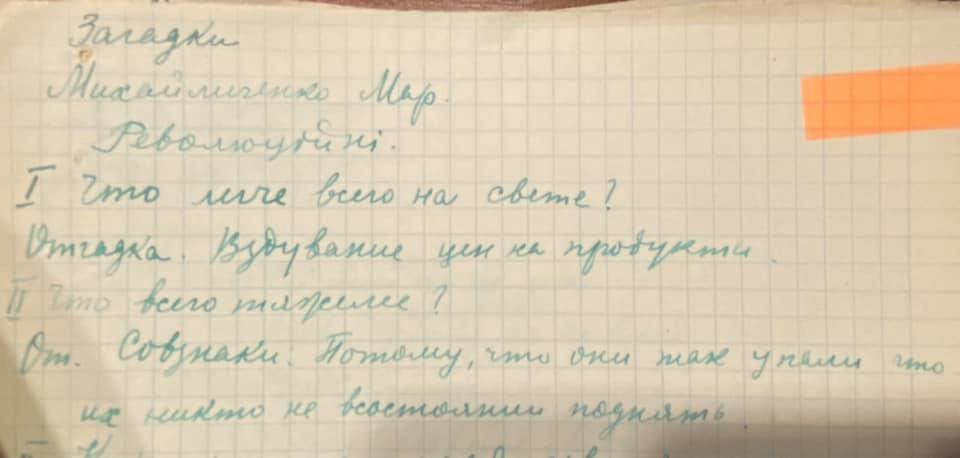 Загадки
Михайличенко Мар.
Революційні.
I Что легче всего на свете?
Отгадка. Вздувание цен на продукти.
II Что всего тяжелее?
От. Совзнаки. Потому, что они так упали что
их никто не всостоянии поднять